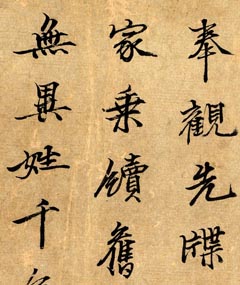 奉觀先牒
家乗續舊
無異姓千